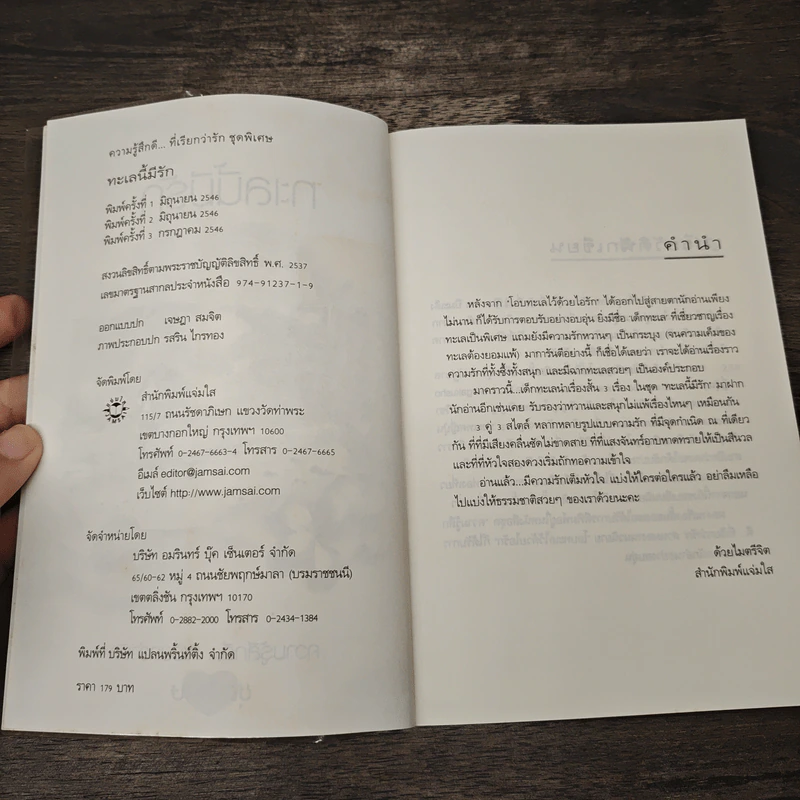 ความรู้สึกดี... ที่เรียกว่ารัก ชุดพิเศษ
ทะเลนี้มีรัก
พิมพ์ครั้งที่ 1 มิถุนายน 2546
พิมพ์ครั้งที่ 2 มิถุนายน 2546
พิมพ์ครั้งที่ 3 กรกฎาคม 2546
สงวนลิขสิทธิ์ตามพระราชบัญญัติลิขสิทธิ์ พ.ศ. 2537
เลขมาตรฐานสากลประจำหนังสือ 974-91237-1-9
ออกแบบปก เจษฎา สมจิต
ภาพประกอบปก รสริน ไกรทอง
จัดพิมพ์โดย
สำนักพิมพ์แจ่มใส
115/7 ถนนรัชดาภิเษก แขวงวัดท่าพระ
เขตบางกอกใหญ่ กรุงเทพฯ 10600
โทรศัพท์ 0-2467-6663-4 โทรสาร 0-2467-6665
อีเมล์ editor@jamsai.com
เว็บไซต์ http://www.jamsai.com
จัดจำหน่ายโดย
บริษัท อมรินทร์ บุ๊ค เซ็นเตอร์ จำกัด
65/60-62 หมู่ 4 ถนนชัยพฤกษ์มาลา (บรมราชชนนี)
เขตตลิ่งชัน กรุงเทพฯ 10170
โทรศัพท์ 0-2882-2000 โทรสาร 0-2434-1384
พิมพ์ที่ บริษัท แปลนพริ้นท์ติ้ง จำกัด
ราคา 179 บาท
คำนำ
หลังจาก "โอบทะเลไว้ด้วยไอรัก" ได้ออกไปสู่สายตานักอ่านเพียง
ไม่นาน ก็ได้รับการตอบรับอย่างอบอุ่น ยิ่งมีชื่อ 'เด็กทะเล' ที่เชี่ยวชาญเรื่อง
ทะเลเป็นพิเศษ แถมยังมีความรักหวานๆ เป็นกระบุง (จนความเค็มของ
ทะเลต้องยอมแพ้) มาการันตีอย่างนี้ ก็เชื่อได้เลยว่า เราจะได้อ่านเรื่องราว
ความรักที่ทั้งซึ้งทั้งสนุก และมีฉากทะเลสวยๆ เป็นองค์ประกอบ
มาคราวนี้...เด็กทะเลนำเรื่องสั้น 3 เรื่อง ในชุด "ทะเลนี้มีรัก" มาฝาก
นักอ่านอีกเช่นเคย รับรองว่าหวานและสนุกไม่แพ้เรื่องไหนๆ เหมือนกัน
3 คู่ 3 สไตล์ หลากหลายรูปแบบความรัก ที่มีจุดกำเนิด ณ ที่เดียว
กัน ที่ที่มีเสียงคลื่นซัดไม่ขาดสาย ที่ที่แสงจันทร์อาบหาดทรายให้เป็นสีนวล
และที่ที่หัวใจสองดวงเริ่มถักทอความเข้าใจ
อ่านแล้ว...มีความรักเต็มหัวใจ แบ่งให้ใครต่อใครแล้ว อย่าลืมเหลือ
ไปแบ่งให้ธรรมชาติสวยๆ ของเราด้วยนะคะ
ด้วยไมตรีจิต
สำนักพิมพ์แจ่มใส